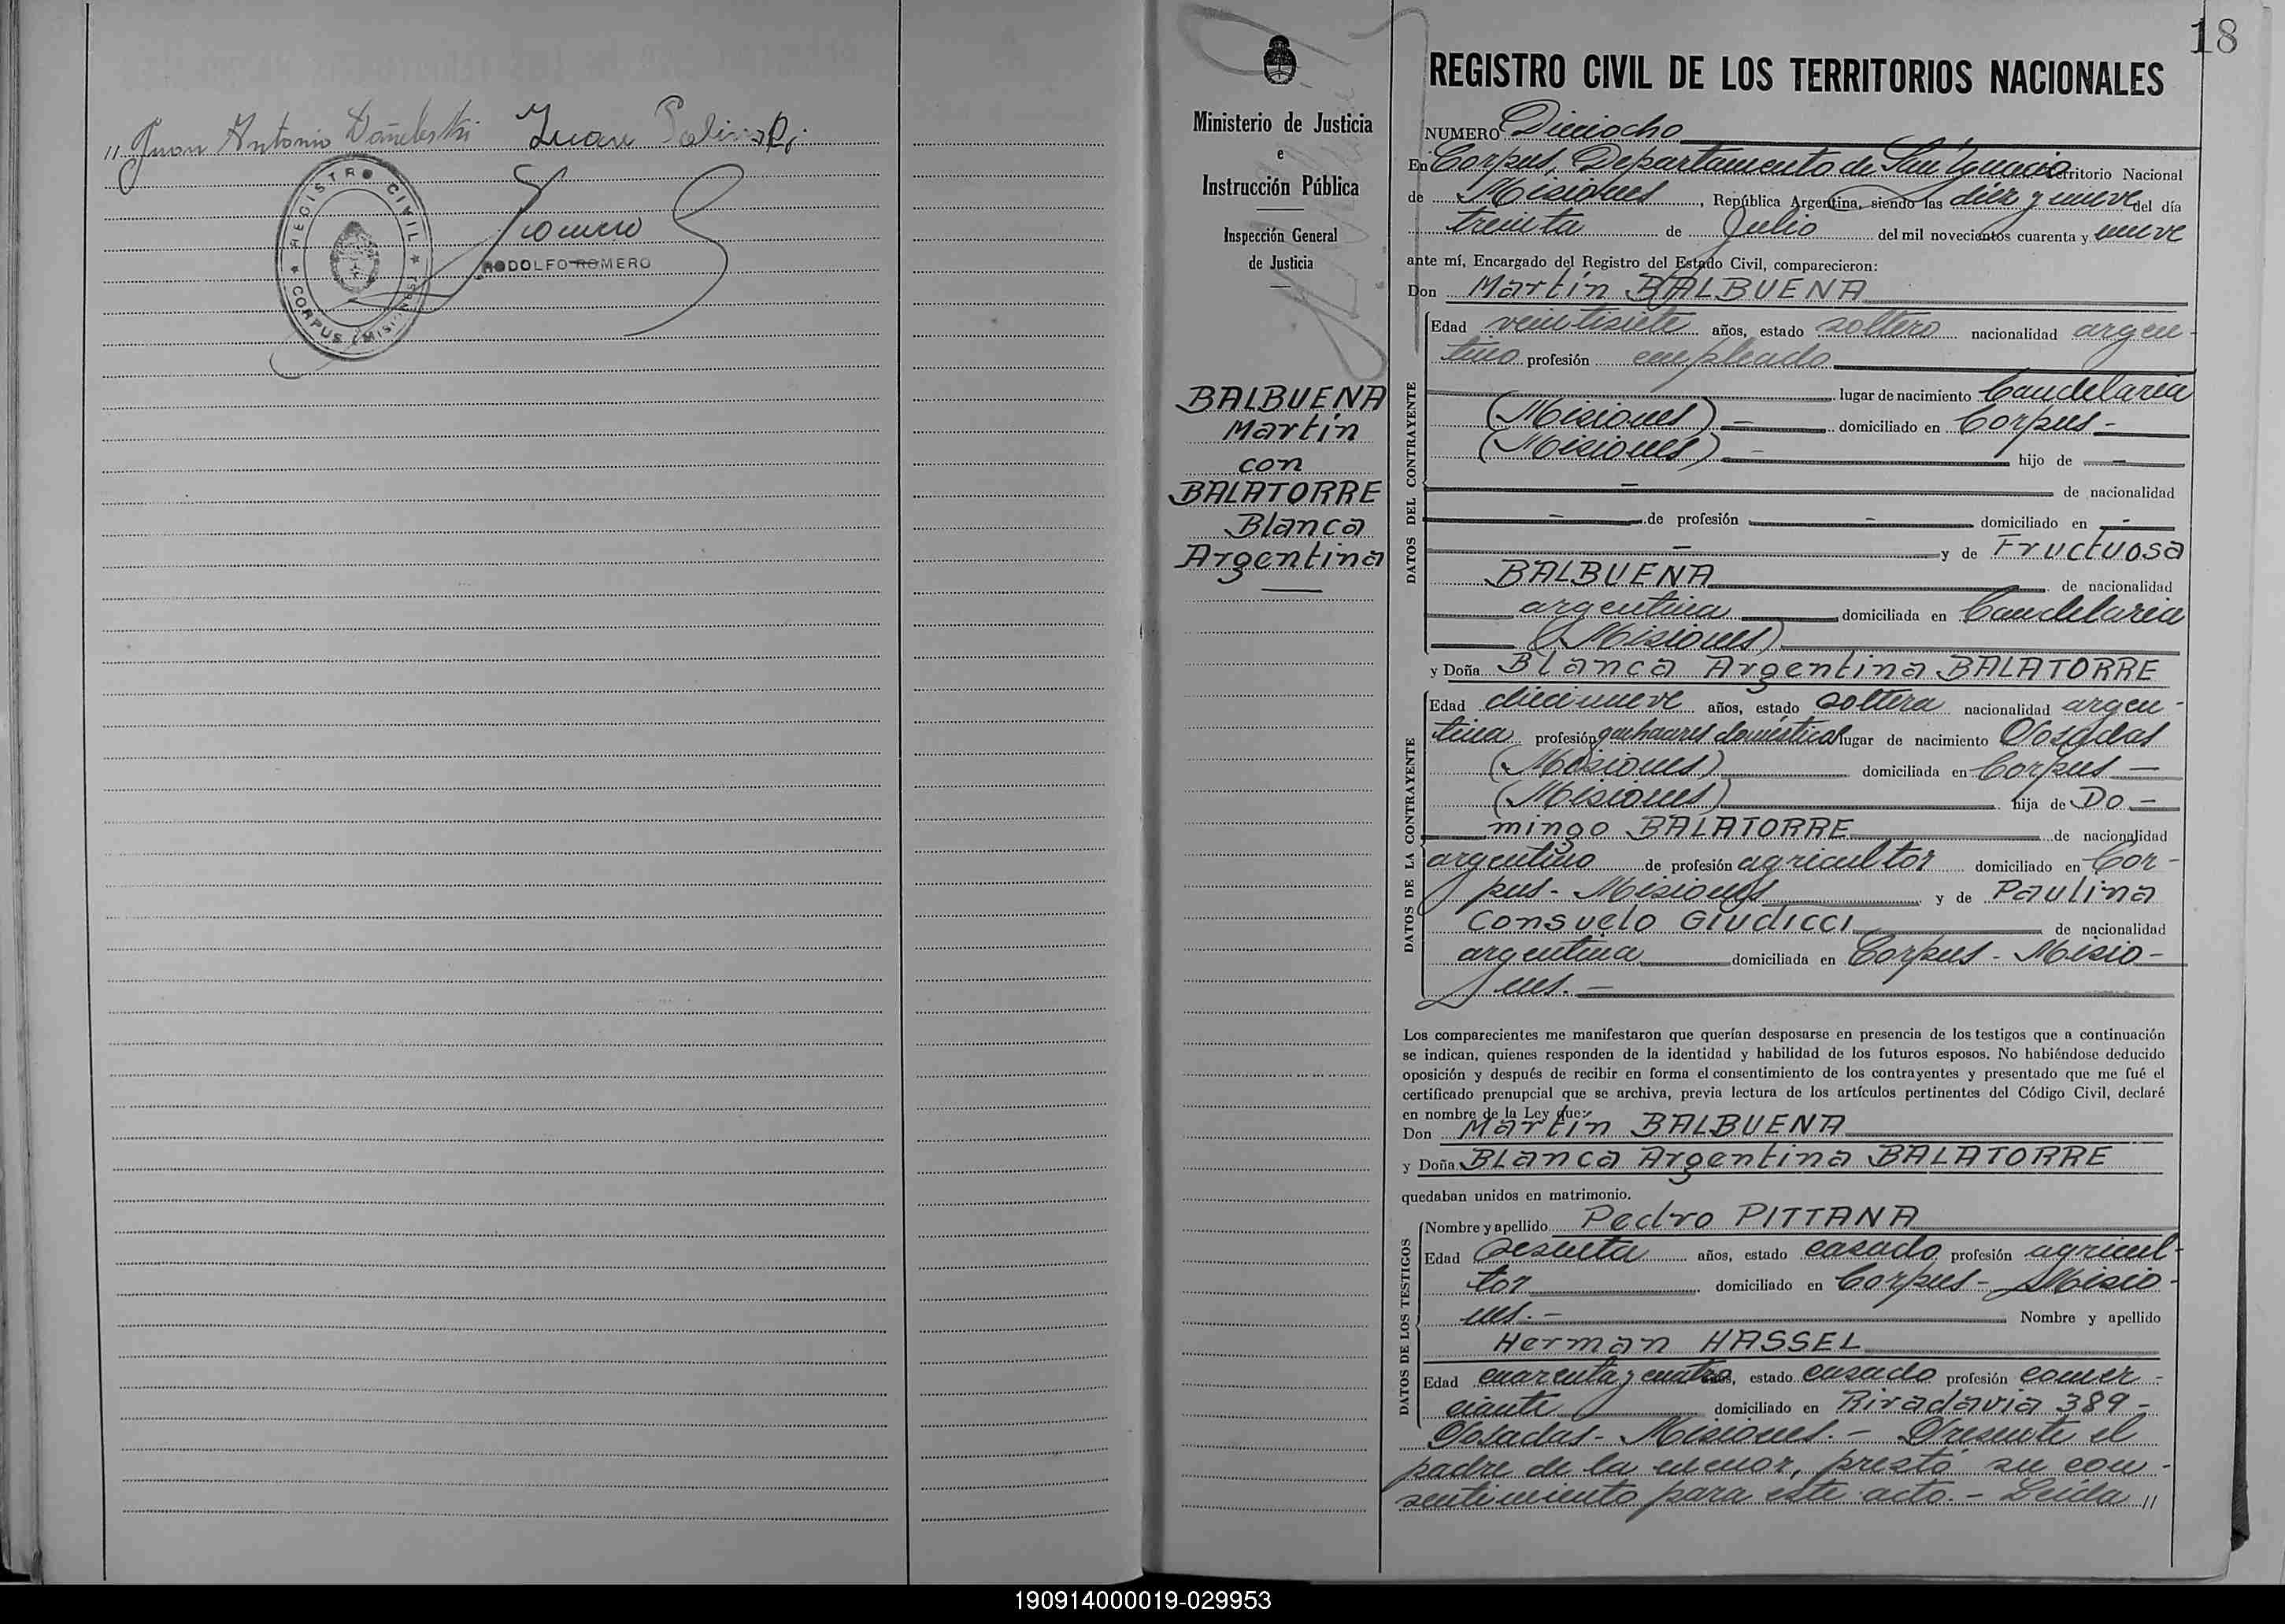 " Juan Antonio Juan
REGISTRO CIVIL
CORPUS (MISIONES)
Romero
RODOLFO ROMERO
18
Ministerio de Justicia
e
Instrucción Pública
Inspección General
de Justicia
BALBUENA
Martín
con
BALATORRE
Blanca
Argentina
REGISTRO CIVIL DE LOS TERRITORIOS NACIONALES
NUMERO Dieciocho
En Corpus, Departamento de San Ignacio Territorio Nacional
de Misiones, República Argentina, siendo las diez y nueve del día
treinta de Julio del mil novecientos cuarenta y nueve
ante mí, Encargado del Registro del Estado Civil, comparecieron:
Don Martín BALBUENA
DATOS DEL CONTRAYENTE
Edad veintisiete años, estado soltero nacionalidad argen-
tino profesión empleado
lugar de nacimiento Candelaria
(Misiones) - domiciliado en Corpus -
(Misiones) - hijo de -
- de nacionalidad
- de profesión - domiciliado en -
- y de Fructuosa
BALBUENA de nacionalidad
argentina domiciliada en Candelaria
(Misiones)
y Doña Blanca Argentina BALATORRE
DATOS DE LA CONTRAYENTE
Edad diecinueve años, estado soltera nacionalidad argen-
tina profesión quehaceres domésticos lugar de nacimiento Posadas
(Misiones) domiciliada en Corpus -
(Misiones) hija de Do-
mingo BALATORRE de nacionalidad
argentino de profesión agricultor domiciliado en Cor-
pus - Misiones y de Paulina
Consuelo GIUDICCI de nacionalidad
argentina domiciliada en Corpus - Misio-
nes. -
Los comparecientes me manifestaron que querían desposarse en presencia de los testigos que a continuación
se indican, quienes responden de la identidad y habilidad de los futuros esposos. No habiéndose deducido
oposición y después de recibir en forma el consentimiento de los contrayentes y presentado que me fué el
certificado prenupcial que se archiva, previa lectura de los artículos pertinentes del Código Civil, declaré
en nombre de la Ley que:
Don Martín BALBUENA
y Doña Blanca Argentina BALATORRE
quedaban unidos en matrimonio.
DATOS DE LOS TESTIGOS
Nombre y apellido Pedro PITTANA
Edad sesenta años, estado casado profesión agricul-
tor domiciliado en Corpus - Misio-
nes. - Nombre y apellido
Herman HASSEL
Edad cuarenta y cuatro años, estado casado profesión comer-
ciante domiciliado en Rivadavia 389 -
Posadas - Misiones. - Presente el
padre de la menor, prestó su con-
sentimiento para este acto. - Leída "
190914000019-029953